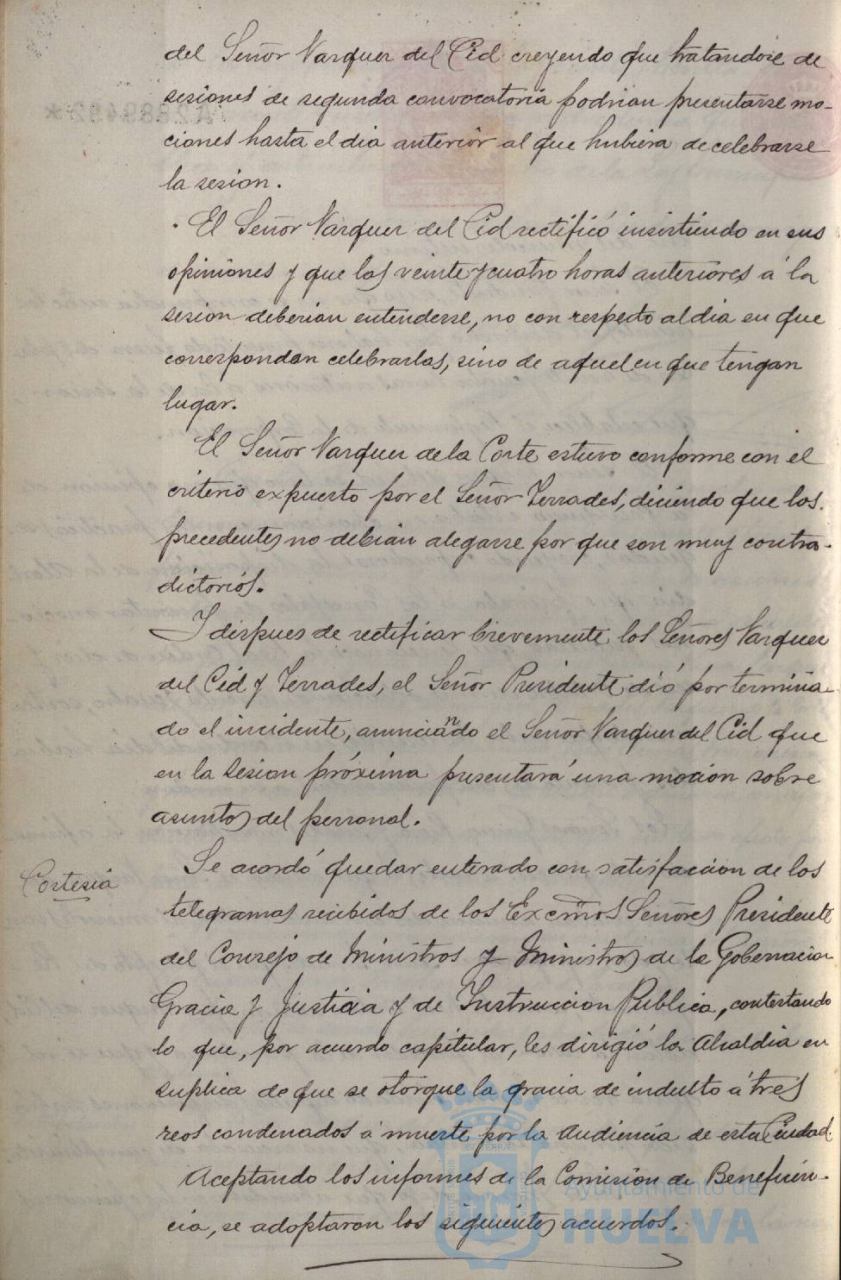 del Señor Vazquez del Cid creyendo que tratandose de
sesiones de segunda convocatoria podrian presentarse mo-
ciones hasta el dia anterior al que hubiera de celebrarse
la sesion.
El Señor Vazquez del Cid rectificó insistiendo en sus
opiniones y que las veinte y cuatro horas anteriores á la
sesion deberian entenderse, no con respecto al dia en que
correspondan celebrarlas, sino de aquel en que tengan
lugar.
El Señor Vazquez de la Corte estuvo conforme con el
criterio expuesto por el Señor Terrades, diciendo que los
precedentes no debian alegarse por que son muy contra-
dictorios.
Y despues de rectificar brevemente los Señores Vazquez
del Cid y Terrades, el Señor Presidente dió por termina-
do el incidente, anunciando el Señor Vazquez del Cid que
en la sesion próxima presentará una mocion sobre
asuntos del personal.
Cortesia
Se acordó quedar enterado con satisfaccion de los
telegramas recibidos de los Excmos Señores Presidente
del Consejo de Ministros y Ministros de la Gobernacion
Gracia y Justicia y de Instruccion Publica, contestando
lo que, por acuerdo capitular, les dirigió la Alcaldia en
suplica de que se otorgue la gracia de indulto á tres
reos condenados á muerte por la Audiencia de esta Ciudad.
Aceptando los informes de la Comision de Beneficen-
cia, se adoptaron los siguientes acuerdos.
Ayuntamiento de
HUELVA